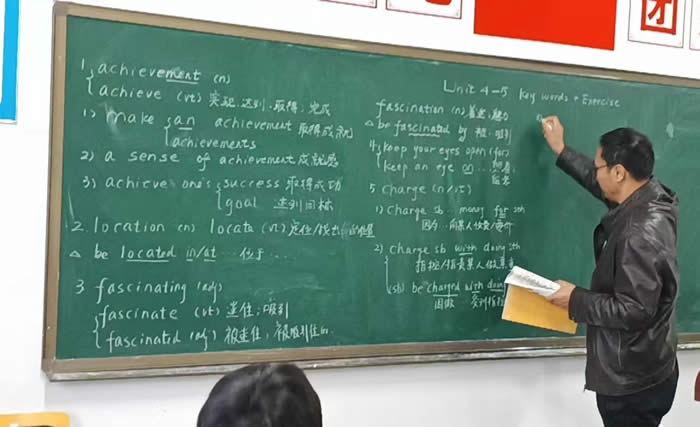 团
Unit 4-5 Key words + Exercise
1, achievement (n)
achieve (vt) 实现, 达到, 取得, 完成
1) make an achievement 取得成就
achievements
2) a sense of achievement 成就感
3) achieve one's success 取得成功
goal 达到目标
2. location (n) locate (vt) 定位/找出
△ be located in/at … 位于 …
3 fascinating (adj)
fascinate (vt) 迷住; 吸引
fascinated (adj) 被迷住, 被吸引住的
fascination (n) 魅力
△ be fascinated by 被 吸引
4, keep your eyes open (for)
keep an eye on …
5 charge (n/vt)
1) charge sb … money for sth
因为 … 向某人收费
2) charge sb with doing sth
指控/指责某人做某事
(sb) be charged with doin
因做 受到指控